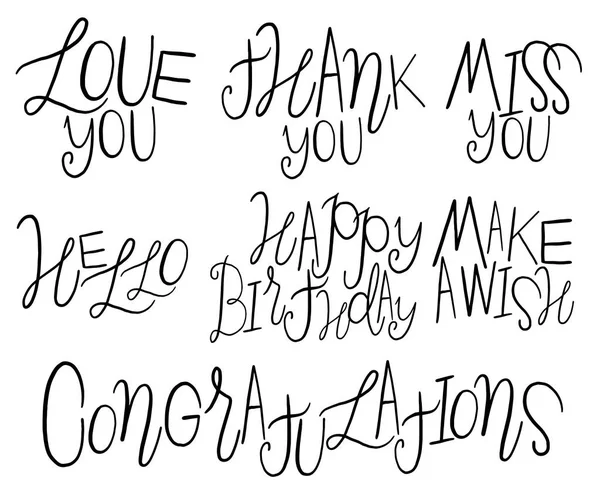 LOVE
YOU
THANK
YOU
MISS
YOU
HELLO
HAPPY
BIRTHDAY
MAKE
A WISH
CONGRATULATIONS